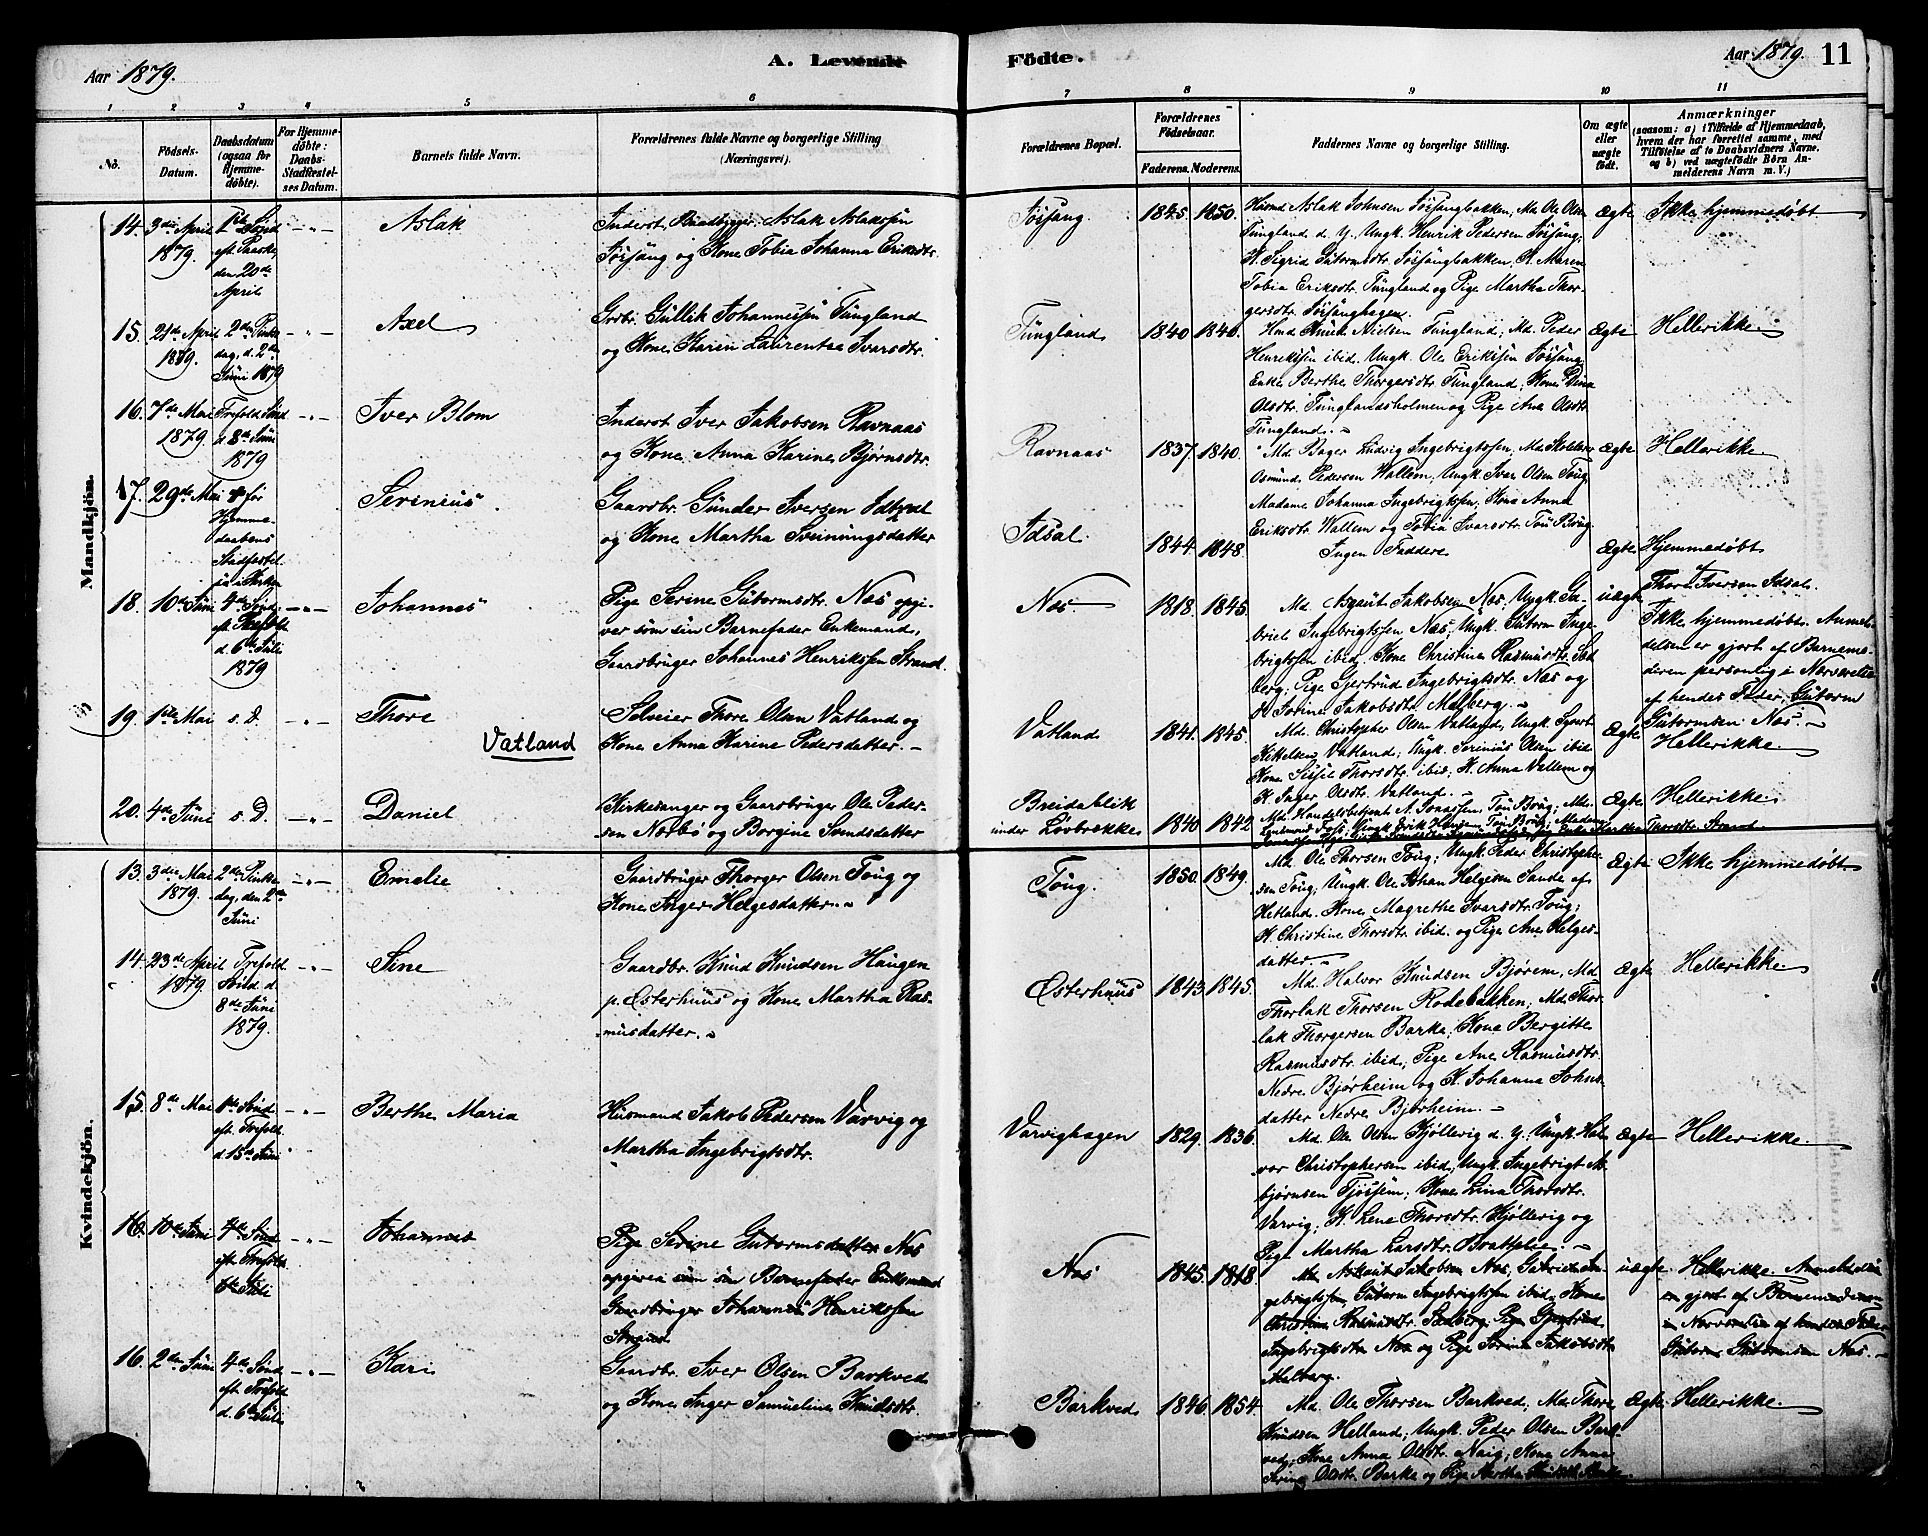 Aar 1879.
A. Levende
Födte.
Aar 1879.
11
1 2 3 4 5 6 7 8 9 10 11
No.
Födsels-Datum.
Daabsdatum (ogsaa for Hjemmedöbte).
For Hjemmedöbte: Daabs-Stadfæstelses Datum.
Barnets fulde Navn.
Forældrenes fulde Navne og borgerlige Stilling (Næringsvei).
Forældrenes Bopæl.
Forældrenes Födselsaar.
Faderens. Moderens.
Faddernes Navne og borgerlige Stilling.
Om ægte eller uægte födt.
Anmærkninger
(saasom: a) i Tilfælde af Hjemmedaab, hvem der har forrettet samme, med Tilföielse af to Daabsvidners Navne. og b) ved uægtefödte Börn Anmelderens Navn m. V.)
Mandkjön.
14. 3die April 1879. 1ste Sönd. eft. Paaske, den 20de April -"- Aslak
Inderst Aslak Aslaksen
Tøsfang og Kone Tobia Johanna Eriksdtr.
Tøsfang 1845. 1850.
Husmd. Aslak Johnsen Tøsfangbakken, Md. Ole Olsen
Tungland d. y. Ungk. Henrik Pedersen Tøsfang;
K. Sigrid Gutormsdtr. Tøsfangbakken, K. Maren
Tobia Eriksdtr. Tungland og Pige Martha Thor-
gersdtr. Tøsfanghagen.
Ægte Ikke hjemmedøbt
15. 21de April 1879. 2den Pintsedag, d. 2den Juni 1879 -"- Axel
Grdbr. Gullik Johannessen Tungland
og Kone Karen Laurentsa Svarsdtr.
Tungland 1840 1846.
Hmd. Nielsen Tungland; Md. Peder
Henriksen ibid. Ungk. Ole Eriksen Tøsfang;
Enke Berthe Thorgersdtr. Tungland; Kone Stina
Olsdtr. Tunglandsholmen og Pige Ane Olsdtr.
Tungland.
Ægte Hellerikke.
16. 7de Mai 1879. Trefold. Sönd. d. 8de Juni 1879 -"- Iver Blom
Inderst Iver Jakobsen Ravnaas
og Kone Anna Karine Bjørnsdtr.
Ravnaas 1837 1840.
Md. Bager Ludvig Ingebrigtsen, Md. Skolelærer
Osmund Pedersen Wallem, Ungk. Svar Olsen Toug
Madame Johanna Ingebrigtsen; Kone Anna
Eriksdtr. Wallem og Tobia Svarsdtr. Tou Brug.
Ægte Hellerikke
17. 29de Mai Hjemmedaabens Stadfæstelse i Kirken Serinius
Gaardbr. Gunder Iversen Idsal
og Kone Martha Sveinungsdatter
Idsal. 1844. 1848.
Ingen Faddere
Ægte Hjemmedøbt
Thore Iversen Idsal.
18. 10de Juni 4de Sönd. eft. Trefold. d. 6te Juli 1879 -"- Johannes
Pige Serine Gutormsdtr. Næs opgi-
ver som sin Barnefader Enkemand,
Gaardbruger Johannes Henriksen Strand.
Næs 1818. 1845.
Md. Asgaut Jakobsen Næs; Ungk. Ga-
briel Ingebrigtsen Næs; Ungk. Gutorm Inge-
brigtsen ibid. Kone Christine Rasmusdtr. Sed
berg, Pige Gjertrud Ingebrigtsdtr. Næs og
P. Sorine Jakobsdtr. Malberg.
uægte Ikke hjemmedøbt. Anmel-
delsen er gjort af Barnemo-
deren personlig i Nærværelse
af hendes Fader, Gutorm
Gutormsen Næs.
19. 1ste Mai s. D. -"- Thore
Vatland
Selveier Thore Olsen Vatland og
Kone Anna Karine Pedersdatter.
Vatland 1841. 1845.
Md. Christopher Olsen Vatland, Ungk. Sjurt
Kittelsen Vatland; Ungk. Serinius Olsen ibid.
Kone Sissil Thorsdtr. ibid; K. Anna Vallem og
K. Inger Olsdtr. Vatland.
Ægte Hellerikke.
20. 4de Juni s. D. -"- Daniel
Kirkesanger og Gaardbruger Ole Peder-
sen Norbø og Borgine Svendsdatter
Breidablik
under Løvbrække 1840 1842
Md. Handelsbetjent A. Tou Brug; Md.
Ægte Hellerikke
Kvindekjön.
13. 3die Mai 1879. 2den Pintsedag, den 2den Juni -"- Emelie
Gaardbruger Thorger Olsen Toug og
Kone Inger Helgesdatter.
Toug. 1850. 1849.
Md. Ole Thorsen Toug; Ungk. Peder Christophe-
sen Toug; Ungk. Ole Johan Helgesen Sande af
Hetland. Kone Magrethe Svarsdtr. Toug;
K. Christine Thorsdtr. ibid. og Pige Ane Helges-
datter.
Ægte Ikke hjemmedøbt
14. 23de April 1879. Trefold. Sönd. d. 8de Juni 1879. -"- Sine
Gaardbr. Knud Knudsen Haugen
p. Østerhuus og Kone Martha Ras-
musdatter.
Østerhuus 1843. 1845.
Md. Halvor Knudsen Bjørem, Md.
Thorlak Thorsen Rodebakken; Md. Thor-
lak Thorgersen Barka; Kone Bergitte
Rasmusdtr. ibid; Pige Ane Rasmusdtr.
Nedre Bjørheim og K. Johanna Johns-
datter Nedre Bjørheim.
Ægte Hellerikke
15. 8de Mai 1ste Sönd. eft. Trefold. d. 15de Juni -"- Berthe Maria
Husmand Jakob Pedersen Varvig og
Martha Ingebrigtsdtr.
Varvighagen 1829. 1836.
Md. Ole Olsen Kjøllevig d. y; Ungk. Hal-
vor Christophersen ibid; Ungk. Ingebrigt As-
bjørnsen Fjøssem; Kone Lina Thorsdtr.
Varvig; K. Lene Thorsdtr. Kjøllevig og
Pige Martha Larsdtr. Brattelie.
ægte Hellerikke.
16. 10de Juni 4de Sönd. eft. Trefold. 6te Juli -"- Johannes
Pige Serine Gutormsdatter Næs
opgiver som sin Barnefader Enkemand
Gaardbruger Johannes Henriksen
Strand
Næs 1845. 1818.
Md. Askaut Jakobsen Næs, Gabriel In-
gebrigtsen, Gutorm Ingebrigtsen ibid. Kone
Christine Rasmusdtr. Sedberg, Pige Gjertrud
Ingebrigtsdtr. Næs og Pige Sorine Jakobsdtr.
Malberg.
uægte. Hellerikke Anmeldelsen
er gjort af Barnemoderen
i Nærværelse af hendes Fader
Gutorm Gutormsen Næs.
16. 2den Juni 4de Sönd. eft. Trefold. d. 6te Juli -"- Kari
Gaardbr. Iver Olsen Barkved
og Kone Inger Samueline Knudsdtr.
Barkved 1846. 1854.
Md. Ole Thorsen Barkved, Md. Thore
Knudsen Helland; Ungk. Peder Olsen Bark-
ved; Kone Anna Olsdtr. Naig; Kone Anne
Serine Olsdtr. Barka og Pige Martha
Ægte Hellerikke.